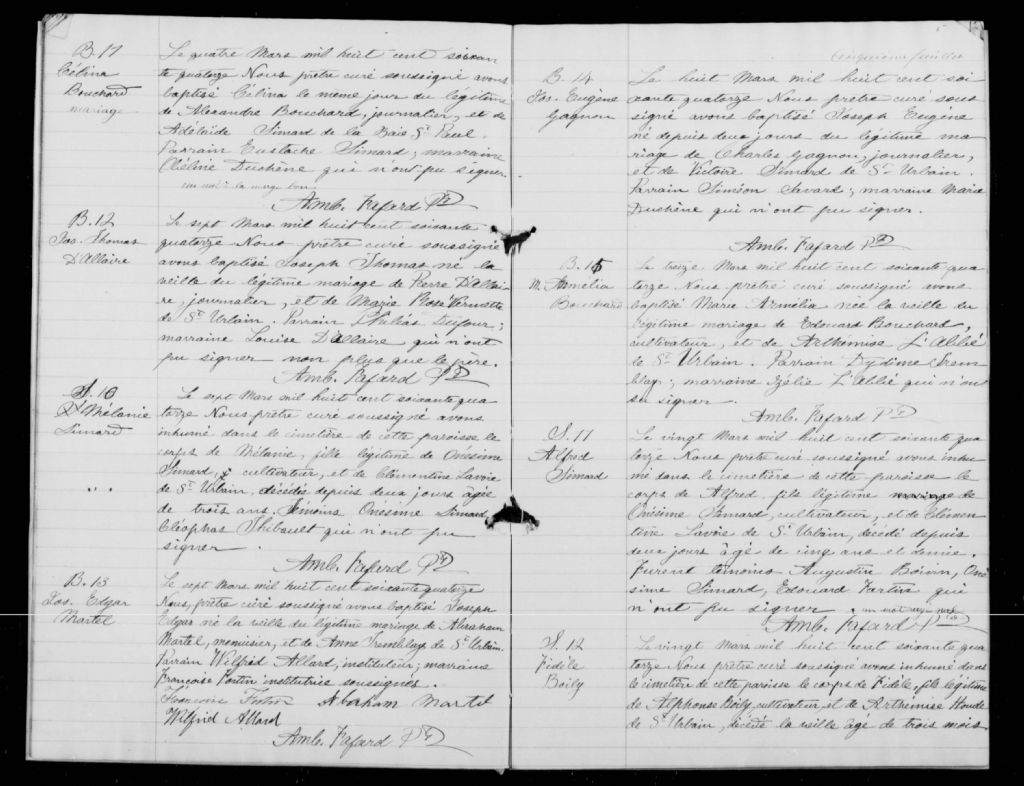 B. 11
Célina
Bouchard
mariage
Le quatre Mars mil huit cent soixan
te quatorze Nous prêtre curé soussigné avons
baptisé Célina le meme jour du légitime
de Alexandre Bouchard, journalier, et de
Adélaïde Simard de la Baie St Paul.
Parrain Eustache Simard; marraine
Duchène qui n'ont pu signer.
un mot à la marge bon
Amb. Fafard Ptr
B. 12
Jos. Thomas
D'Allaire
Le sept Mars mil huit cent soixante
quatorze Nous prêtre curé soussigné
avons baptisé Joseph Thomas né la
veille du légitime mariage de Pierre D'Allai
re, journalier, et de Marie Rose Vermette
de St Urbain. Parrain Philéas Dufour;
marraine Louise D'Allaire qui n'ont
pu signer non plus que le père.
Amb. Fafard Ptr
S. 10
Mélanie
Simard
Le sept Mars mil huit cent soixante qua
torze Nous prêtre curé soussigné avons
inhumé dans le cimetière de cette paroisse le
corps de Mélanie, fille légitime de Onésime
Simard, cultivateur, et de Clémentine Lavoie
de St Urbain, décédée depuis deux jours âgée
de trois ans. Témoins Onésime Simard,
Cléophas Thibault qui n'ont pu
signer.
Amb. Fafard Ptr
B. 13
Jos. Edgar
Martel
Le sept Mars mil huit cent soixante quatorze
Nous, prêtre curé soussigné avons baptisé Joseph
Edgar né la veille du légitime mariage de Abraham
Martel, menuisier, et de Anne Tremblay, de St Urbain.
Parrain Wilfrid Allard, instituteur; marraine
Françoise Fortin institutrice soussignés.
Françoise Fortin Abraham Martel
Wilfrid Allard
Amb. Fafard Ptr
feuillet
B. 14
Jos. Eugène
Gagnon
Le huit Mars mil huit cent soi
xante quatorze Nous prêtre curé sous
signé avons baptisé Joseph Eugène
né depuis deux jours du légitime ma
riage de Charles Gagnon, journalier,
et de Victoire Simard de St Urbain.
Parrain Siméon Savard; marraine Marie
Duchène qui n'ont pu signer.
Amb. Fafard Ptr
B. 15
M. Armélia
Bouchard
Le treize Mars mil huit cent soixante qua
torze Nous prêtre curé soussigné avons
baptisé Marie Armélia née la veille du
légitime mariage de Edouard Bouchard,
cultivateur, et de Arthémise L'Abbé
de St Urbain. Parrain Dydime Trem
blay; marraine Zélie L'Abbé qui n'ont
su signer.
Amb. Fafard Ptr
S. 11
Alfred
Simard
Le vingt Mars mil huit cent soixante qua
torze Nous prêtre curé soussigné avons inhu
mé dans le cimetière de cette paroisse le
corps de Alfred, fils légitime mariage de
Onésime Simard, cultivateur, et de Clémen
tine Lavoie de St Urbain, décédé depuis
deux jours âgé de cinq ans et demie.
Furent témoins Augustin Boivin, Oné
sime Simard, Edouard Fortin qui
n'ont pu signer. un mot rayé nul
Amb. Fafard Ptr
S. 12
Fidèle
Boily
Le vingt Mars mil huit cent soixante qua
torze Nous prêtre curé soussigné avons inhumé dans
le cimetière de cette paroisse le corps de Fidèle, fils légitime
de Alphonse Boily, cultivateur, et de Arthémise Houde
de St Urbain, décédé la veille âgé de trois mois.